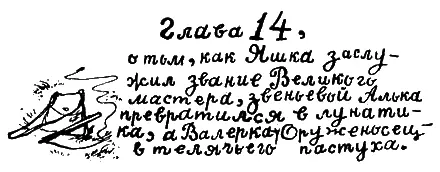 Глава 14,
о том, как Яшка заслу-
жил звание Великого
мастера, звеньевой Алька
превратился в лунати-
ка, а Валерка-Оруженосец-
в телячьего пастуха.